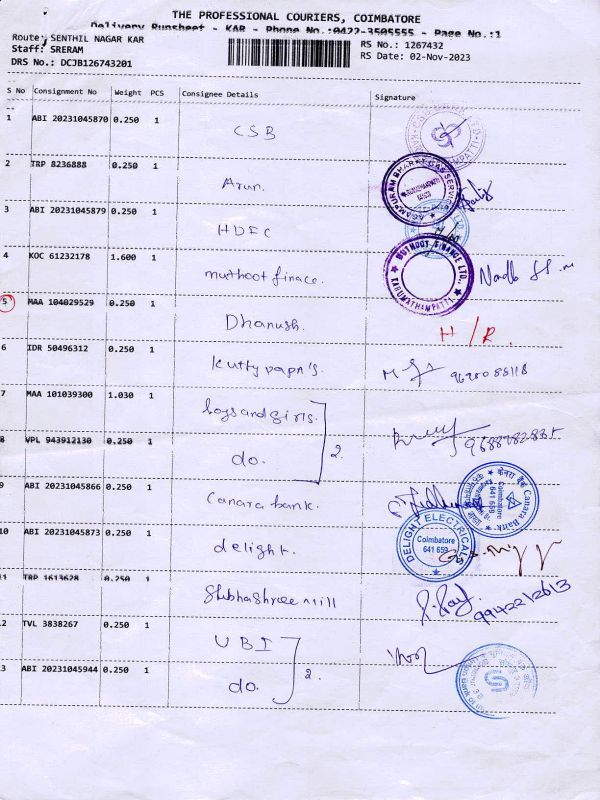 THE PROFESSIONAL COURIERS, COIMBATORE
Delivery Runsheet - KAR - Phone No.:0422-3505555 - Page No.:1
Route: SENTHIL NAGAR KAR
Staff: SRERAM
DRS No.: DCJB126743201
RS No.: 1267432
RS Date: 02-Nov-2023
S No Consignment No Weight PCS Consignee Details Signature
1 ABI 20231045870 0.250 1 CSB
2 TRP 8236888 0.250 1 Arun.
3 ABI 20231045879 0.250 1 HDFC
4 KOC 61232178 1.600 1 muthoot finace.
MUTHOOT FINANCE LTD.,
KARUMATHAMPATTI
5 MAA 104029529 0.250 1 Dhanush. H/R.
6 IDR 50496312 0.250 1 kutty papn's.
7 MAA 101039300 1.030 1 boys and girls. 2.
8 VPL 943912130 0.250 1 do.
9 ABI 20231045866 0.250 1 Canara bank.
केनरा बैंक Canara Bank
Coimbatore
641 659
10 ABI 20231045873 0.250 1 delight.
DELIGHT ELECTRICALS
Coimbatore
641 659
11 TRP 1613628 0.250 1 Shubhashree mill
9942212613
12 TVL 3838267 0.250 1 UBI 2.
13 ABI 20231045944 0.250 1 do.